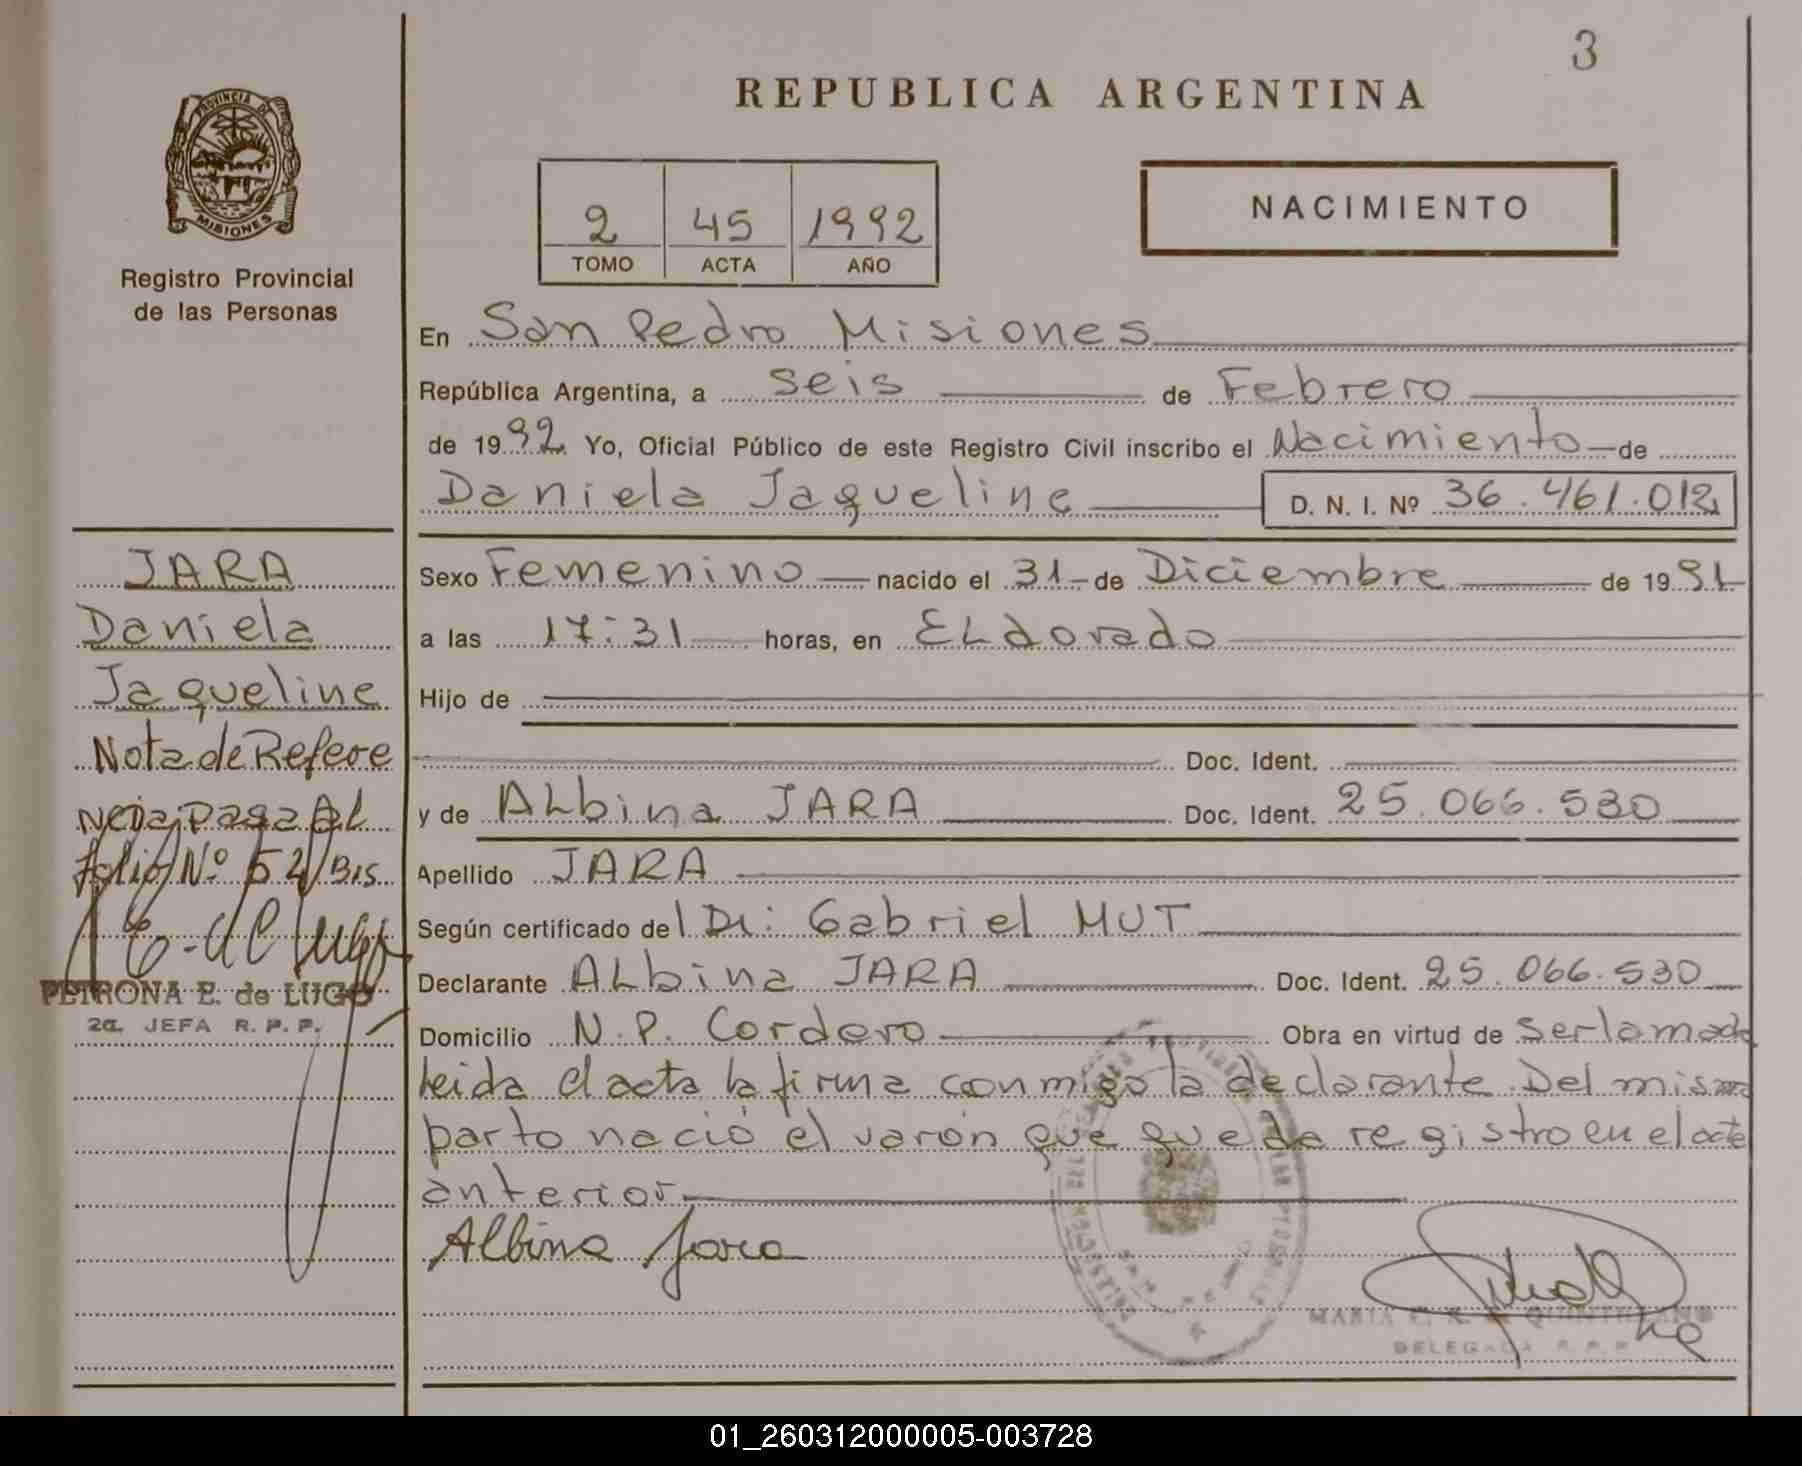 3
REPUBLICA ARGENTINA
PROVINCIA DE
MISIONES
Registro Provincial
de las Personas
2 45 1992
TOMO ACTA AÑO
NACIMIENTO
En San Pedro Misiones
República Argentina, a seis de Febrero
de 1992 Yo, Oficial Público de este Registro Civil inscribo el Nacimiento de
Daniela Jaqueline D. N. I. Nº 36.461.012
Sexo Femenino nacido el 31 de Diciembre de 1991
a las 17:31 horas, en ELdorado
Hijo de
Doc. Ident.
y de ALbina JARA Doc. Ident. 25.066.530
Apellido JARA
Según certificado del Dr: Gabriel MUT
Declarante ALbina JARA Doc. Ident. 25.066.530
Domicilio N.P. Cordero Obra en virtud de ser la madre
leida el acta la firma conmigo la declarante. Del mismo
parto nació el varón que queda registro en el acta
anterior
Albina Jara
MARIA QUINTELANO
DELEGADA R.P.P.
JARA
Daniela
Jaqueline
Nota de Refere
ncia Pasa AL
folio Nº 52 Bis
PETRONA E. de LUGO
2a. JEFA R. P. P.
01_260312000005-003728